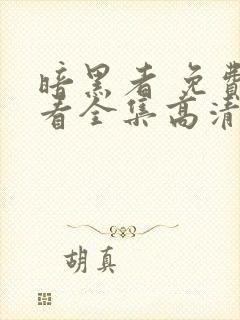 暗黑者免费
看全集高清
胡真